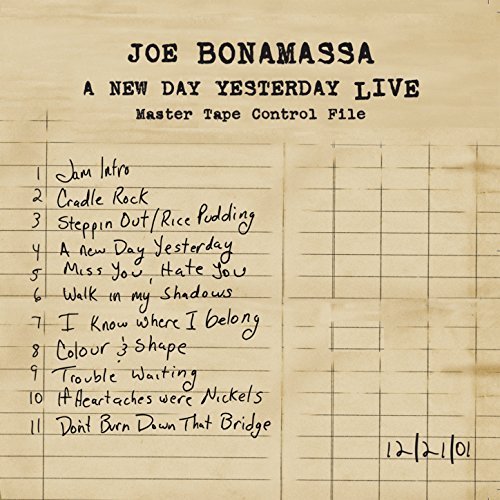 JOE BONAMASSA
A NEW DAY YESTERDAY LIVE
Master Tape Control File
1 Jam Intro
2 Cradle Rock
3 Steppin Out/Rice Pudding
4 A New Day Yesterday
5 Miss You, Hate You
6 Walk in my Shadows
7 I Know where I belong
8 Colour & Shape
9 Trouble Waiting
10 If Heartaches were Nickels
11 Don't Burn Down That Bridge
12/21/01